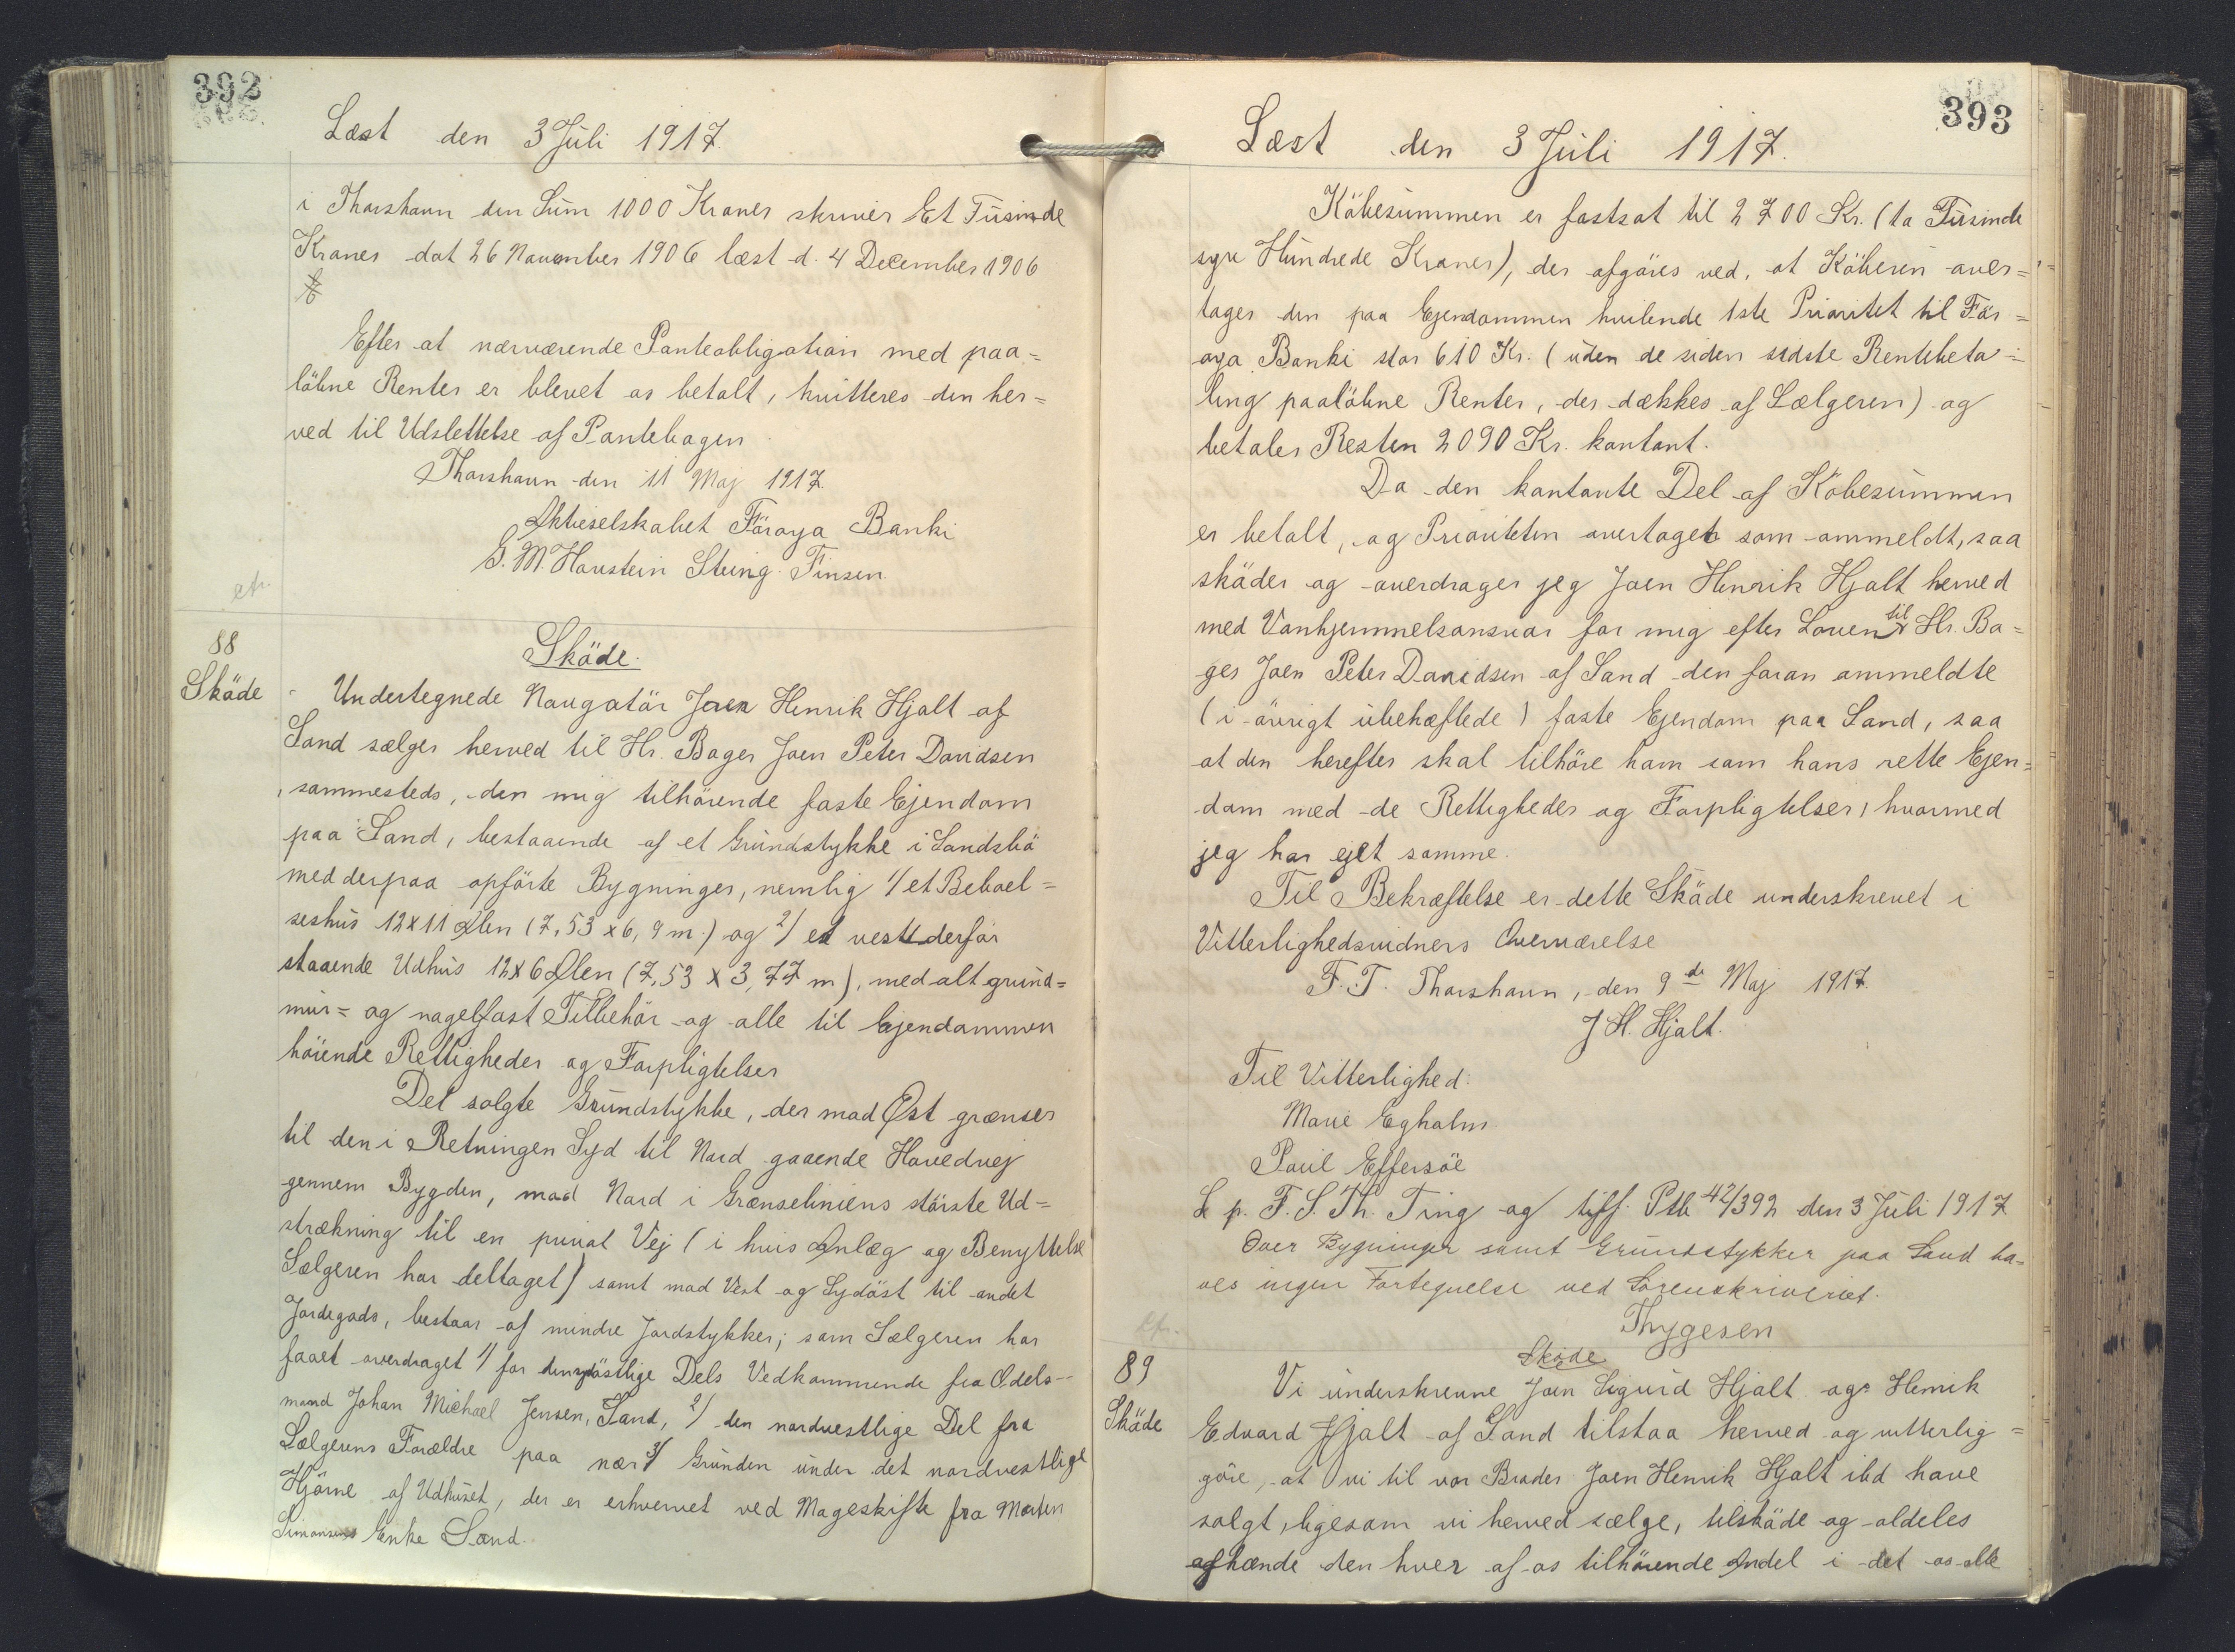 392
Læst den 3 Juli 1917.
i Thorshavn den Sum 1000 Kroner skriver Et Tusinde
Kroner dat 26 November 1906 læst d. 4 December 1906
Efter at nærværende Panteobligation med paa=
löbne Renter er blevet os betalt, kvitteres den her=
ved til Udslettelse af Pantebogen
Thorshavn den 11 Maj 1917.
Aktieselskabet Föroya Banki
G. M. Havstein Steing. Finsen
cfr.
88
Sköde
Sköde.
Undertegnede Navgatör Joen Henrik Hjalt af
Sand sælger herved til Hr. Bager Joen Peter Davidsen
sammesteds, den mig tilhörende faste Ejendom
paa Sand, bestaaende af et Grundstykke i Sandsbö
med derpaa opförte Bygninger, nemlig 1/ et Beboel=
seshus 12x11 Alen (7,53 x 6,9 m.) og 2/ et vest derfor
staaende Udhus 12x6 Alen (7,53 x 3,77 m), med alt grund=
mur= og nagelfast Tilbehör og alle til Ejendommen
hörende Rettigheder og Forpligtelser
Det solgte Grundstykke, der mod Øst grænser
til den i Retningen Syd til Nord gaaende Hovedvej
gennem Bygden, mod Nord i Grænseliniens störste Ud=
strækning til en privat Vej (i hvis Anlæg og Benyttelse
Sælgeren har deltaget) samt mod Vest og Sydöst til andet
Jordegods, bestaar af mindre Jordstykker, som Sælgeren har
faaet overdraget 1/ for den östlige Dels Vedkommende fra Odels-
mand Johan Michael Jensen, Sand, 2/ den nordvestlige Del fra
Sælgerens Forældre paa nær 3/ Grunden under det nordvestlige
Hjörne af Udhuset, der er erhvervet ved Mageskifte fra Morten
Simonsens Enke Sand.
393
Læst den 3 Juli 1917.
Köbesummen er fastsat til 2700 Kr. (to Tusinde
syv Hundrede Kroner), der afgöres ved, at Köberen over=
tager den paa Ejendommen hvilende 1ste Prioritet til För=
oya Banki stor 610 Kr. (uden de siden sidste Rentebeta=
ling paalöbne Renter, der dækkes af Sælgeren) og
betaler Resten 2090 Kr. kontant.
Da den kontante Del af Köbesummen
er betalt, og Prioriteten overtaget som ommeldt, saa
sköder og overdrager jeg Joen Henrik Hjalt herved
med Vanhjemmelsansvar for mig efter Loven til Hr. Ba=
ger Joen Peter Davidsen af Sand den foran ommeldte
(i övrigt ubehæftede) faste Ejendom paa Sand, saa
at den herefter skal tilhöre ham som hans rette Ejen=
dom med de Rettigheder og Forpligtelser, hvormed
jeg har ejet samme.
Til Bekræftelse er dette Sköde underskrevet i
Vitterlighedsvidners Overværelse
F. T. Thorshavn, den 9de Maj 1917.
J H. Hjalt.
Til Vitterlighed:
Marie Egholm
Poul Effersöe
L p. F. S. Th. Ting og tilf. Ptb 42/392 den 3 Juli 1917
Over Bygninger samt Grundstykker paa Sand ha=
ves ingen Fortegnelse ved Sorenskriveriet.
Thygesen
cfr.
89
Sköde
Sköde
Vi underskrevne Joen Sigurd Hjalt og Henrik
Edvard Hjalt af Sand tilstaa herved og vitterlig=
göre, at vi til vor Broder Joen Henrik Hjalt ibd have
solgt, ligesom vi herved sælge, tilsköde og aldeles
afhænde den hver af os tilhörende Andel i det os alle